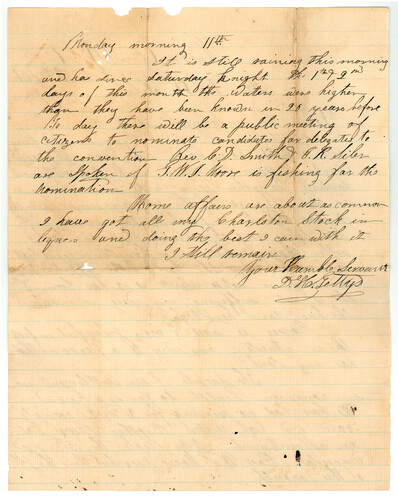 Monday morning 11th
It is still raining this morning
and has since Saturday knight the 1st & 2nd
days of this month the waters were higher
than they have been known in 25 years before
day there will be a public meeting of
citizens to nominate candidates for delegates to
the convention Rev C. D. Smith & Siler
are Spoken of Moore is fishing for the
nomination
Home affairs are about as common
I have got all my Charleston Stock in
and doing the best I can with it
I Still remain
Your Humble Servant